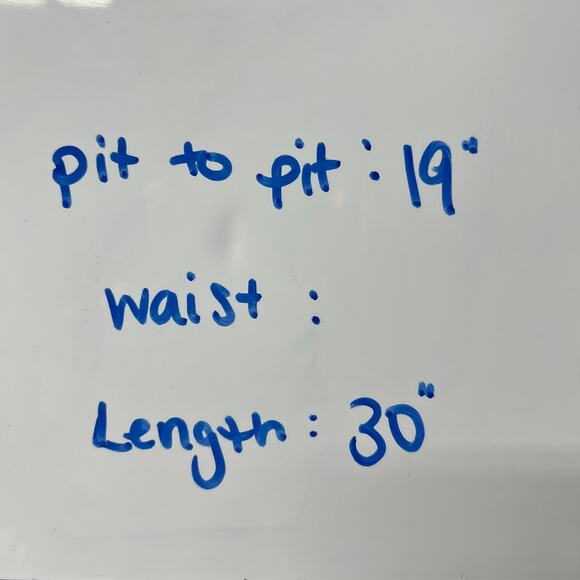 pit to pit : 19"
waist :
Length : 30"